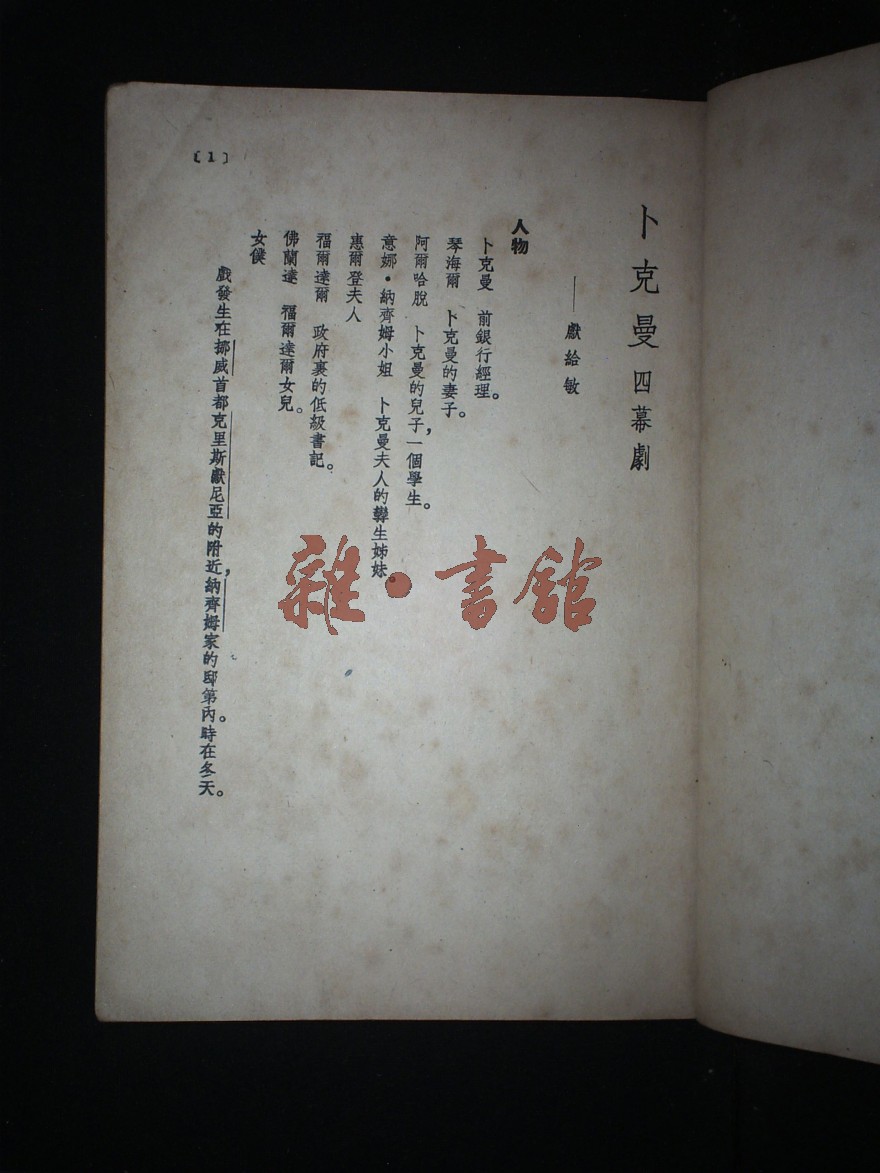 卜克曼 四幕劇
——獻給敏
人物
卜克曼 前銀行經理。
琴海爾 卜克曼的妻子。
阿爾哈脫 卜克曼的兒子,一個學生。
意娜•納齊姆小姐 卜克曼夫人的孿生姊妹。
惠爾登夫人
福爾達爾 政府裏的低級書記。
佛蘭達 福爾達爾女兒。
女僕
戲發生在挪威首都克里斯獻尼亞的附近,納齊姆家的邸第內。時在冬天。
〔1〕
雜•書館